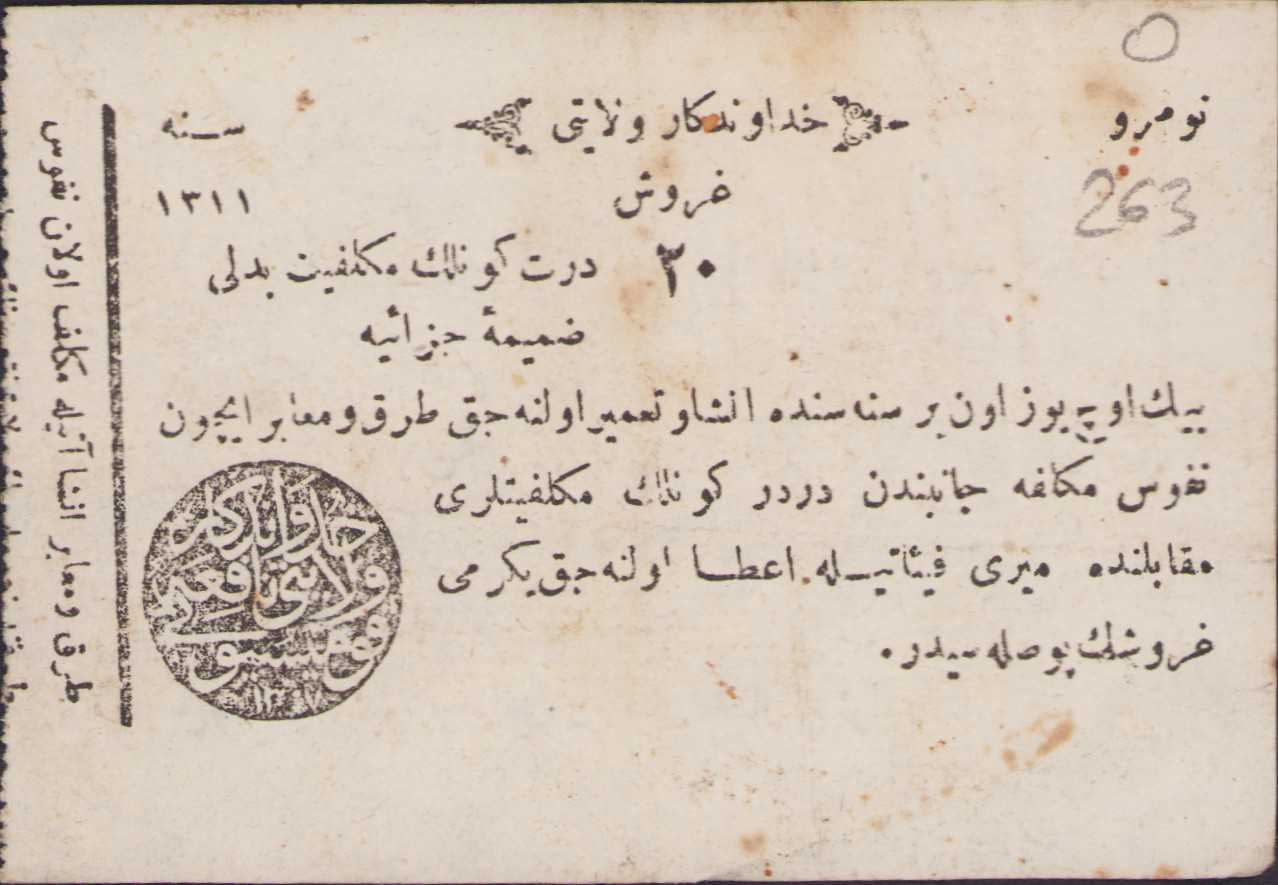 نومرو
263
خداوندكار ولايتى
سنه
١٣١١
غروش
٢٠
درت كونلك مكلفيت بدلى
ضميمۀ جزائيه
بيك اوچ يوز اون بر سنه سنده انشا و تعمير اولنه جق طرق و معابر ايچون
نفوس مكلفه جانبندن دردر كونلك مكلفيتلرى
مقابلنده ميرى فيئاتيله اعطا اولنه جق يكرمى
غروشلك پوصله سيدر.
خداوندكار ولايتى نافعه قومسيونى
طرق و معابر انشاآتيله مكلف اولان نفوس